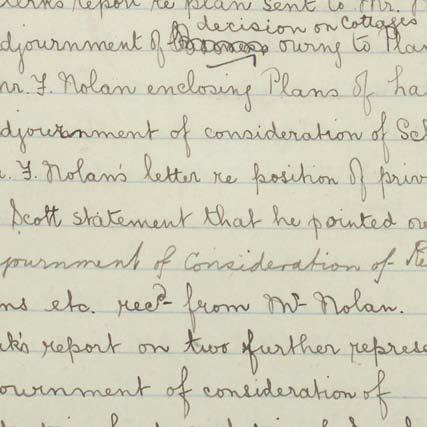 report re plan sent to Mr.
decision on Cottages
djournment of owing to Plan
mr. F. Nolan enclosing Plans of ha
djournment of consideration of Sch
. F. Nolan's letter re position of priv
Scott statement that he pointed ou
journment of Consideration of Re
ns etc. recd from Mr Nolan.
rk's report on two further represe
ournment of consideration of